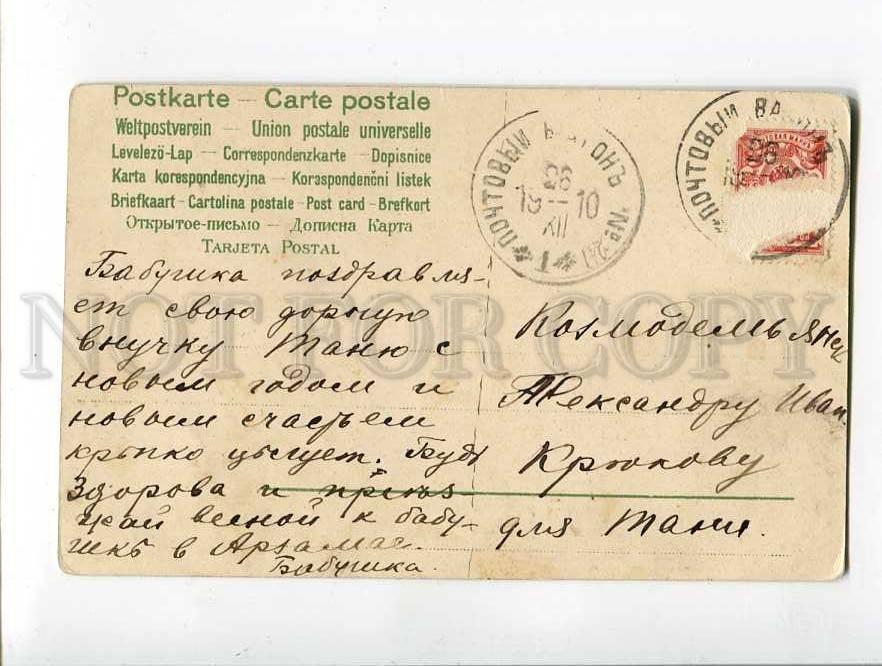 Postkarte — Carte postale
Weltpostverein — Union postale universelle
Levelező-Lap — Correspondenzkarte — Dopisnice
Karta korespondencyjna — Korespondenční listek
Briefkaart - Cartolina postale - Post card - Brefkort
Открытое-письмо — Дописна Карта
TARJETA POSTAL
ПОЧТОВЫЙ ВАГОНЪ №
26
19 — 10
XII
ПОЧТОВЫЙ ВАГОНЪ
26
Бабушка поздравля-
ет свою дорогую
внучку Таню с
новым годом и
новым счастьем
крѣпко цѣлует. Будь
здорова и прiѣз-
жай весной к бабу-
шкѣ в Арзамас.
Бабушка.
Козмодемьянск
Александру Иван.
Крюкову
для Тани.
NOT FOR COPY